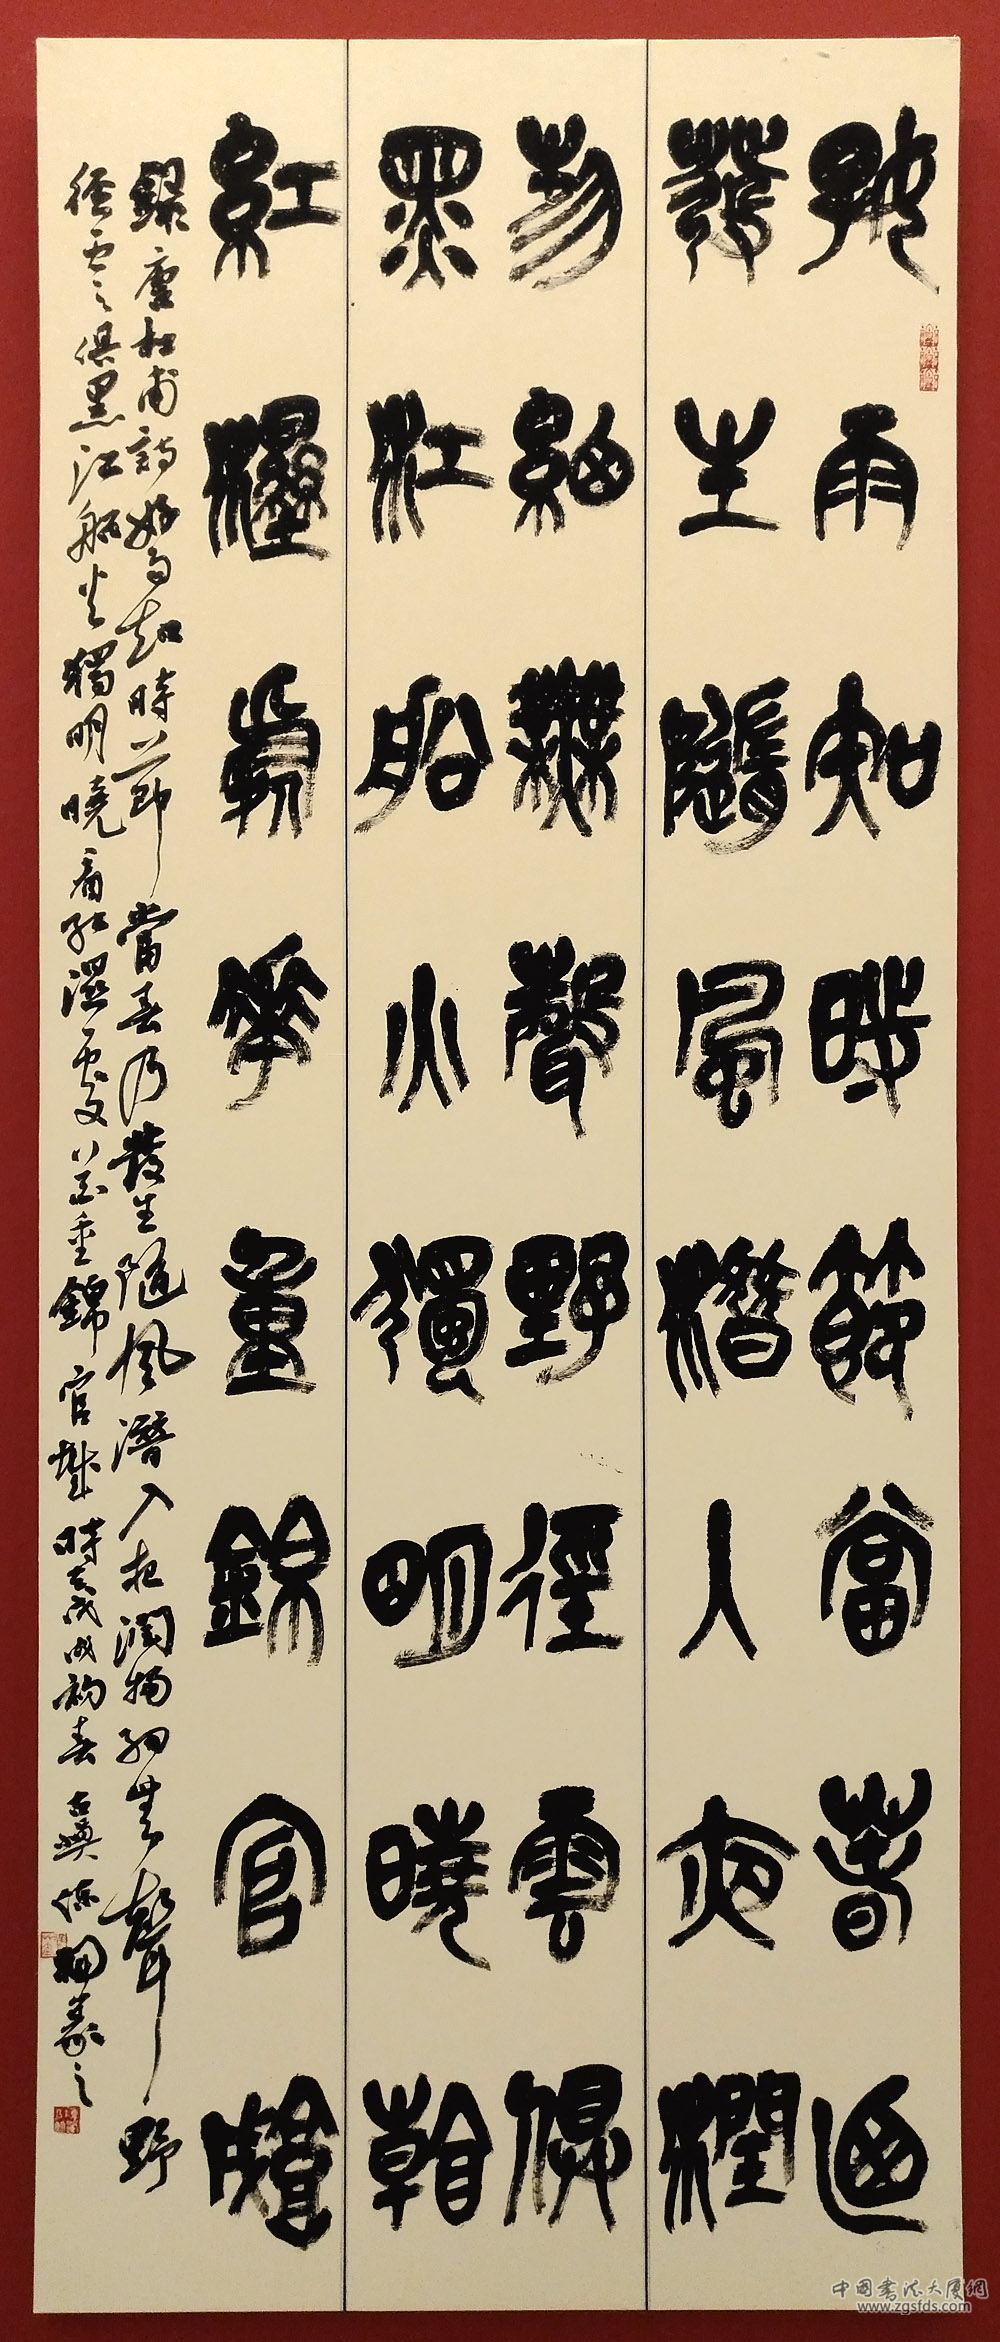 好雨知時節當春迺
發生隨風潛入夜潤
物細無聲野徑雲俱
黑江船火獨明曉看
紅溼處花重錦官城
錄唐杜甫詩好雨知時節當春乃發生隨風潛入夜潤物細無聲野
徑雲俱黑江船火獨明曉看紅濕處花重錦官城時戊戌初春
中国书法大厦網
www.zgsfds.com